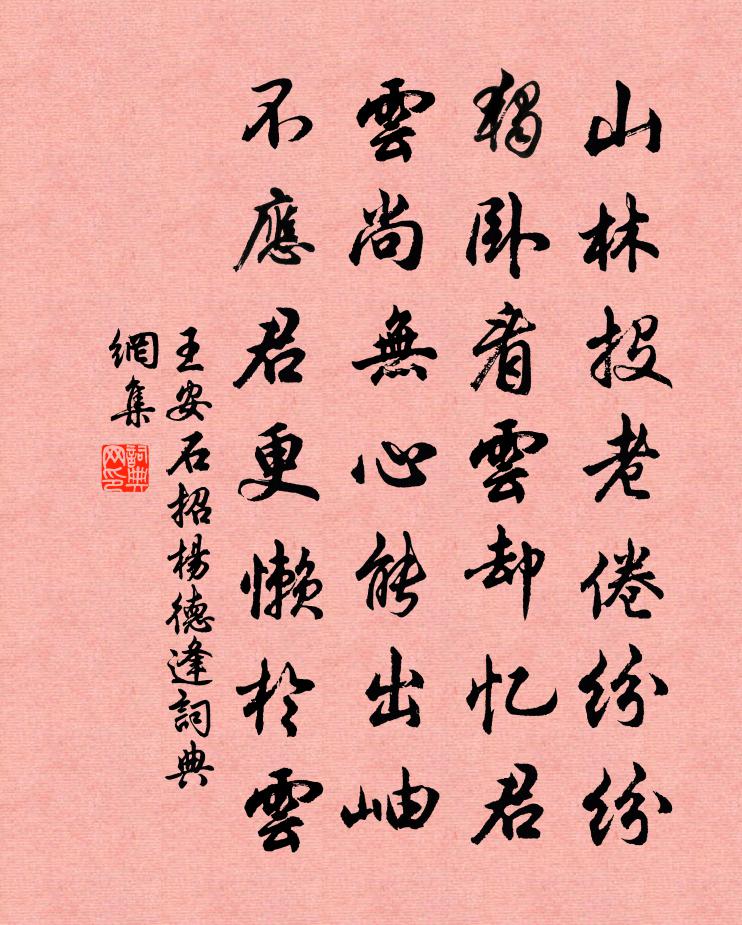 山林投老倦紛紛
獨卧看雲却忆君
雲尚無心能出岫
不應君更懒於雲
王安石招楊德逢詞典
網集
詞典
网印